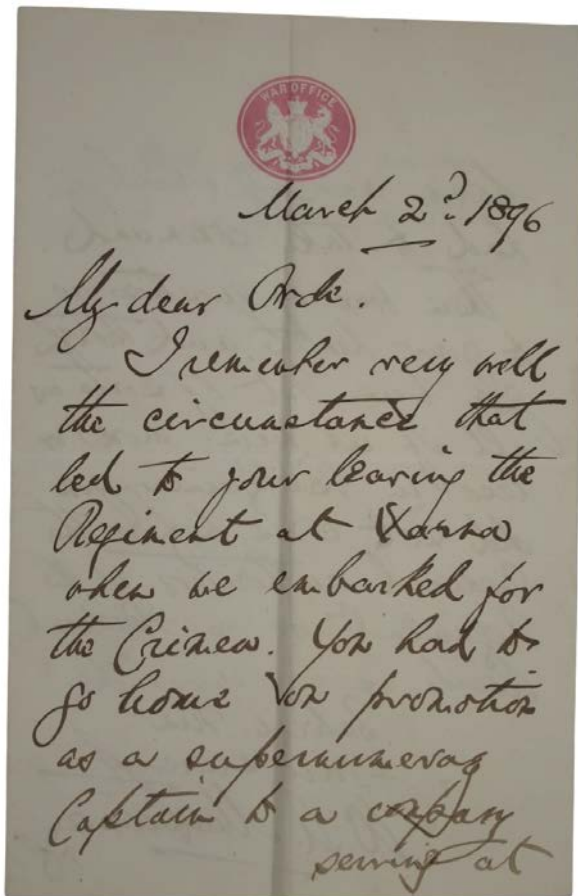 WAR OFFICE
March 2d. 1896
My dear Orde.
I remember very well
the circumstance that
led to your leaving the
Regiment at Varna
when we embarked for
the Crimea. You had to
go home on promotion
as a supernumerary
Captain to a company
serving at